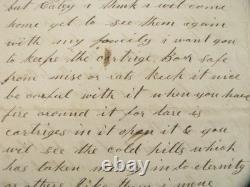 but Caty i think i wil come
home yet to see them again
with my family i want you
to keepe the cartrige Box safe
from mise or rats keep it nice
be careful with it when you have
fire around it for dare is
cartriges in it open it & you
wil see the cold pills which
has taken many in to eternity
or others like them i mene